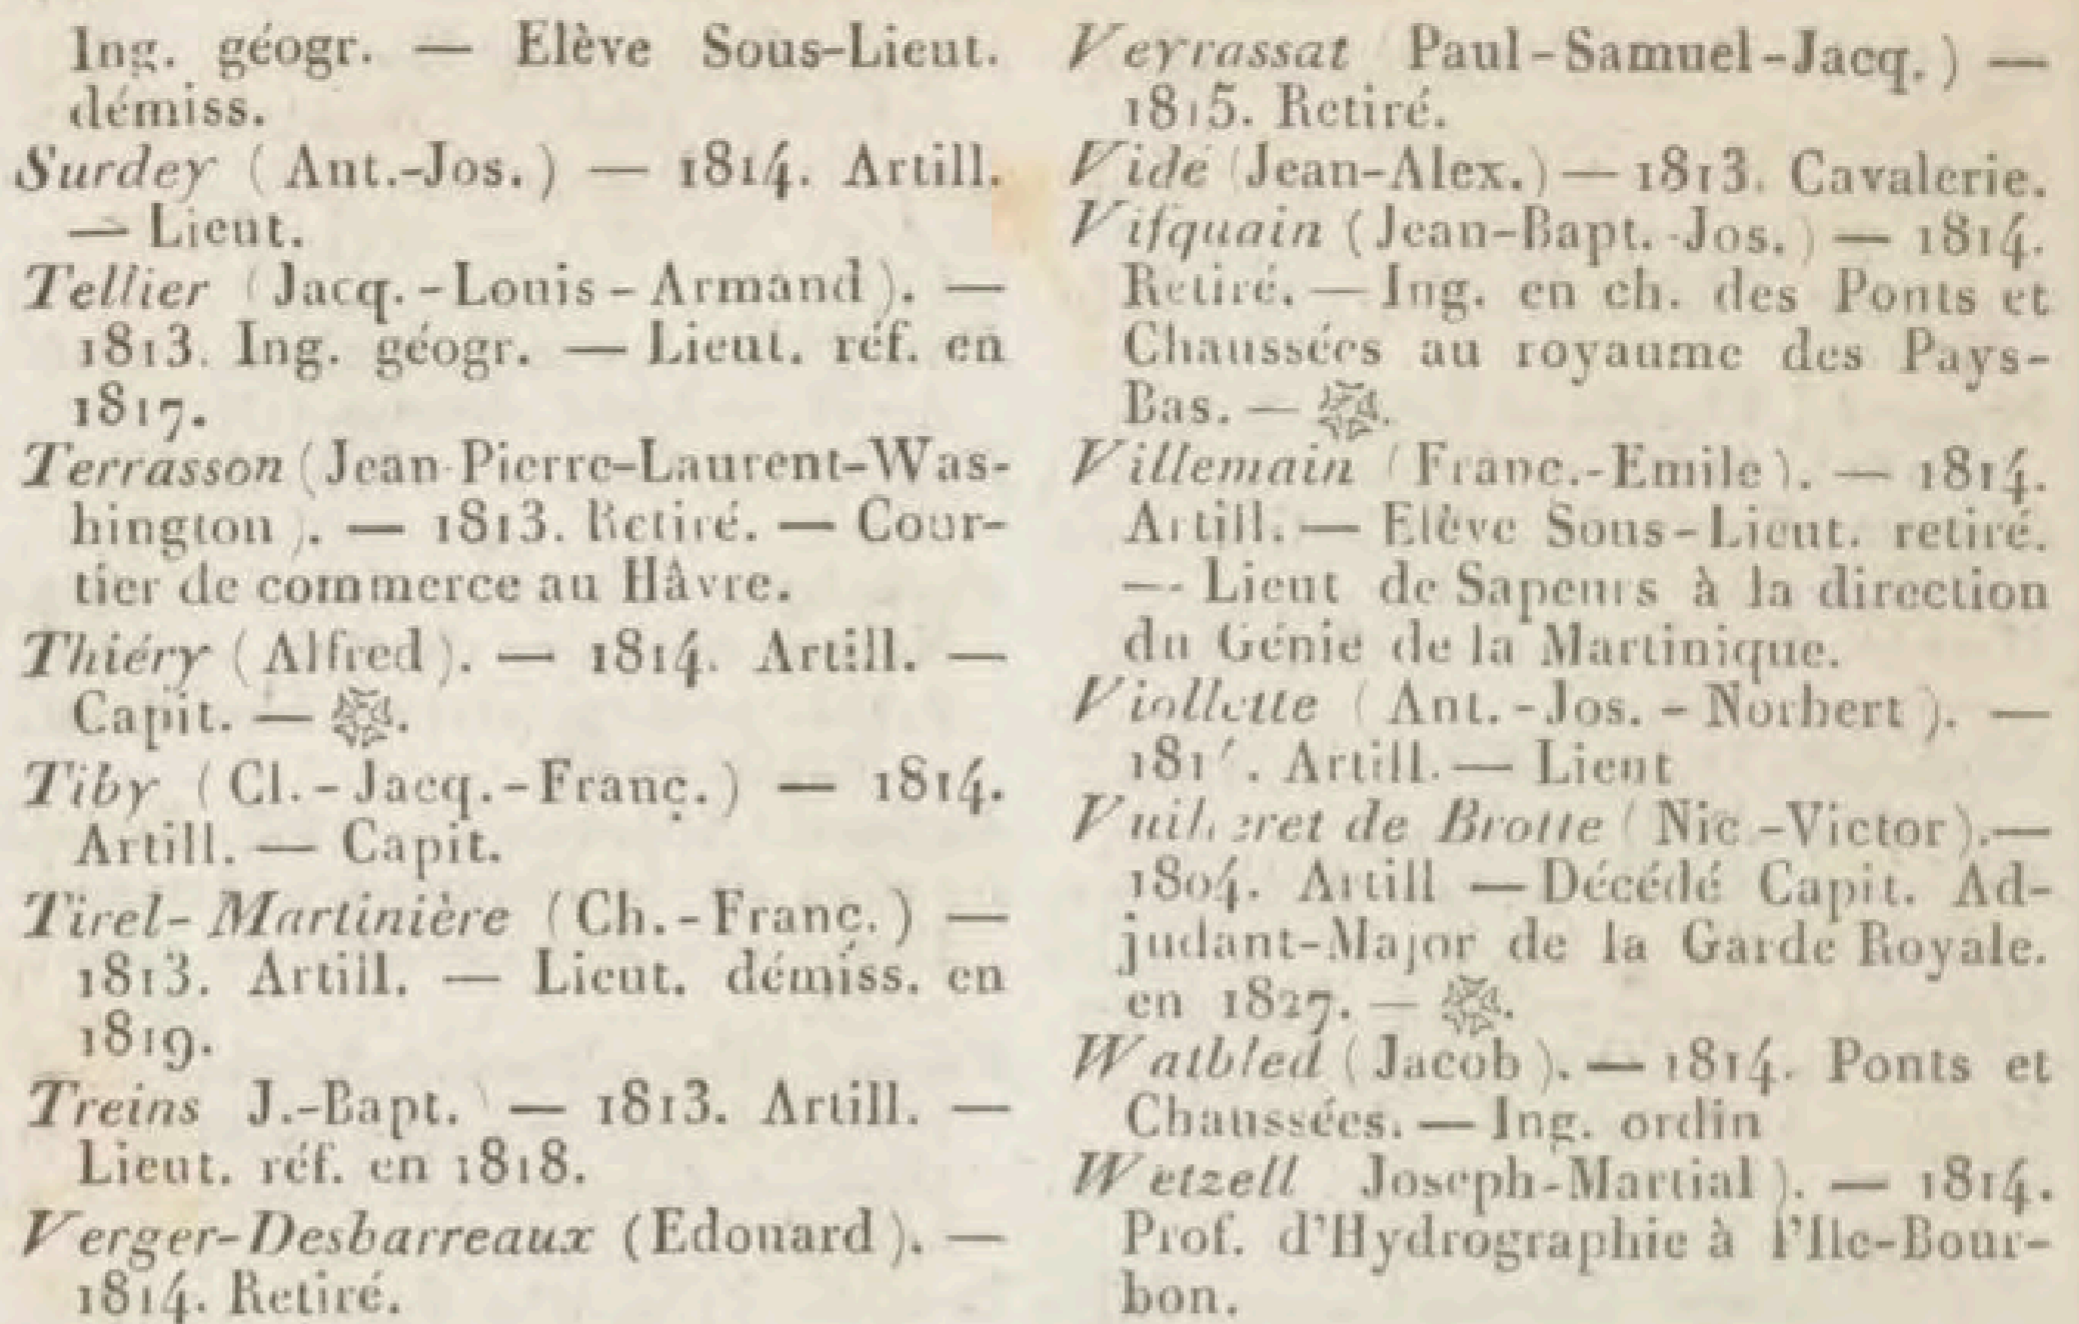 Ing. géogr. — Elève Sous-Lieut.
démiss.
Surdey (Ant.-Jos.) — 1814. Artill.
— Lieut.
Tellier (Jacq.-Louis-Armand). —
1813. Ing. géogr. — Lieut. réf. en
1817.
Terrasson (Jean-Pierre-Laurent-Was-
hington). — 1813. Retiré. — Cour-
tier de commerce au Hâvre.
Thiéry (Alfred). — 1814. Artill. —
Capit. — .
Tiby (Cl.-Jacq.-Franç.) — 1814.
Artill. — Capit.
Tirel-Martinière (Ch.-Franç.) —
1813. Artill. — Lieut. démiss. en
1819.
Treins J.-Bapt. ) — 1813. Artill. —
Lieut. réf. en 1818.
Verger-Desbarreaux (Edouard). —
1814. Retiré.
Veyrassat Paul-Samuel-Jacq.) —
1815. Retiré.
Vidé (Jean-Alex.) — 1813. Cavalerie.
Vifquain (Jean-Bapt.-Jos.) — 1814.
Retiré. — Ing. en ch. des Ponts et
Chaussées au royaume des Pays-
Bas. — .
Villemain (Franc.-Emile). — 1814.
Artill. — Elève Sous-Lieut. retiré.
— Lieut de Sapeurs à la direction
du Génie de la Martinique.
Viollette (Ant.-Jos.-Norbert). —
Artill. — Lieut
de Brotte (Nic.-Victor). —
1804. Artill — Décédé Capit. Ad-
judant-Major de la Garde Royale.
en 1827. — .
Watbled (Jacob). — 1814. Ponts et
Chaussées. — Ing. ordin
Wetzell Joseph-Martial). — 1814.
Prof. d'Hydrographie à l'Ile-Bour-
bon.